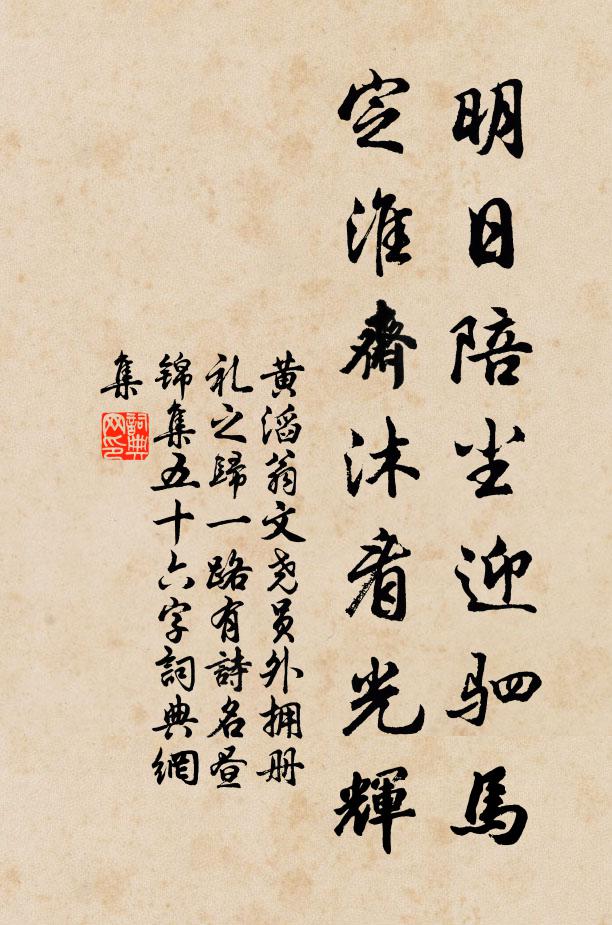 明日陪尘迎驷馬
定淮齋沐看光輝
黄滔翁文尧员外拥册
礼之歸一路有詩名昼
锦集五十六字詞典網
集
詞典网印